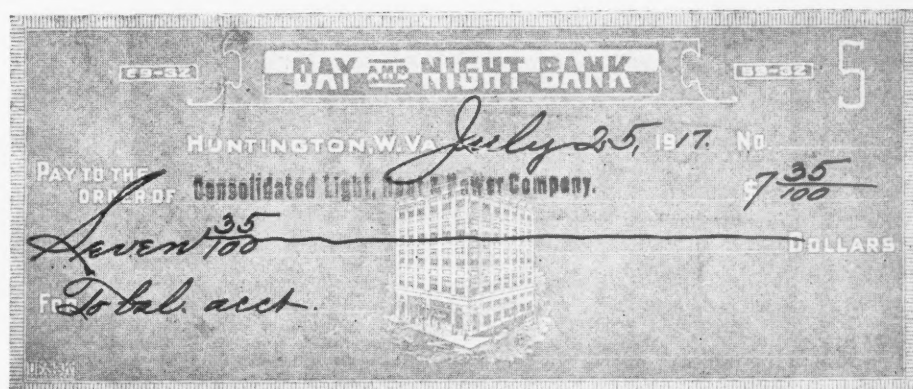 69-32 DAY AND NIGHT BANK 69-32 5
HUNTINGTON, W. VA. July 25, 1917. No
PAY TO THE
ORDER OF Consolidated Light, Heat & Power Company. $7 35/100
Seven 35/100 DOLLARS
For To bal. acct.